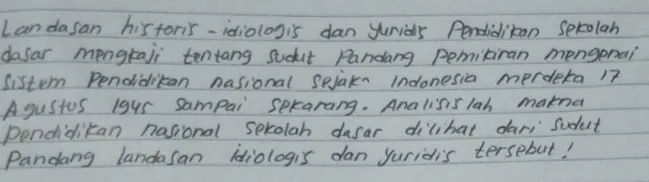 Landasan historis - idiologis dan yuridis Pendidikan sekolah
dasar mengkaji tentang sudut Pandang Pemikiran mengenai
Sistem Pendidikan nasional sejak Indonesia merdeka 17
Agustus 1945 sampai sekarang. Analisislah makna
pendidikan nasional sekolah dasar dilihat dari sudut
Pandang landasan idiologis dan yuridis tersebut!